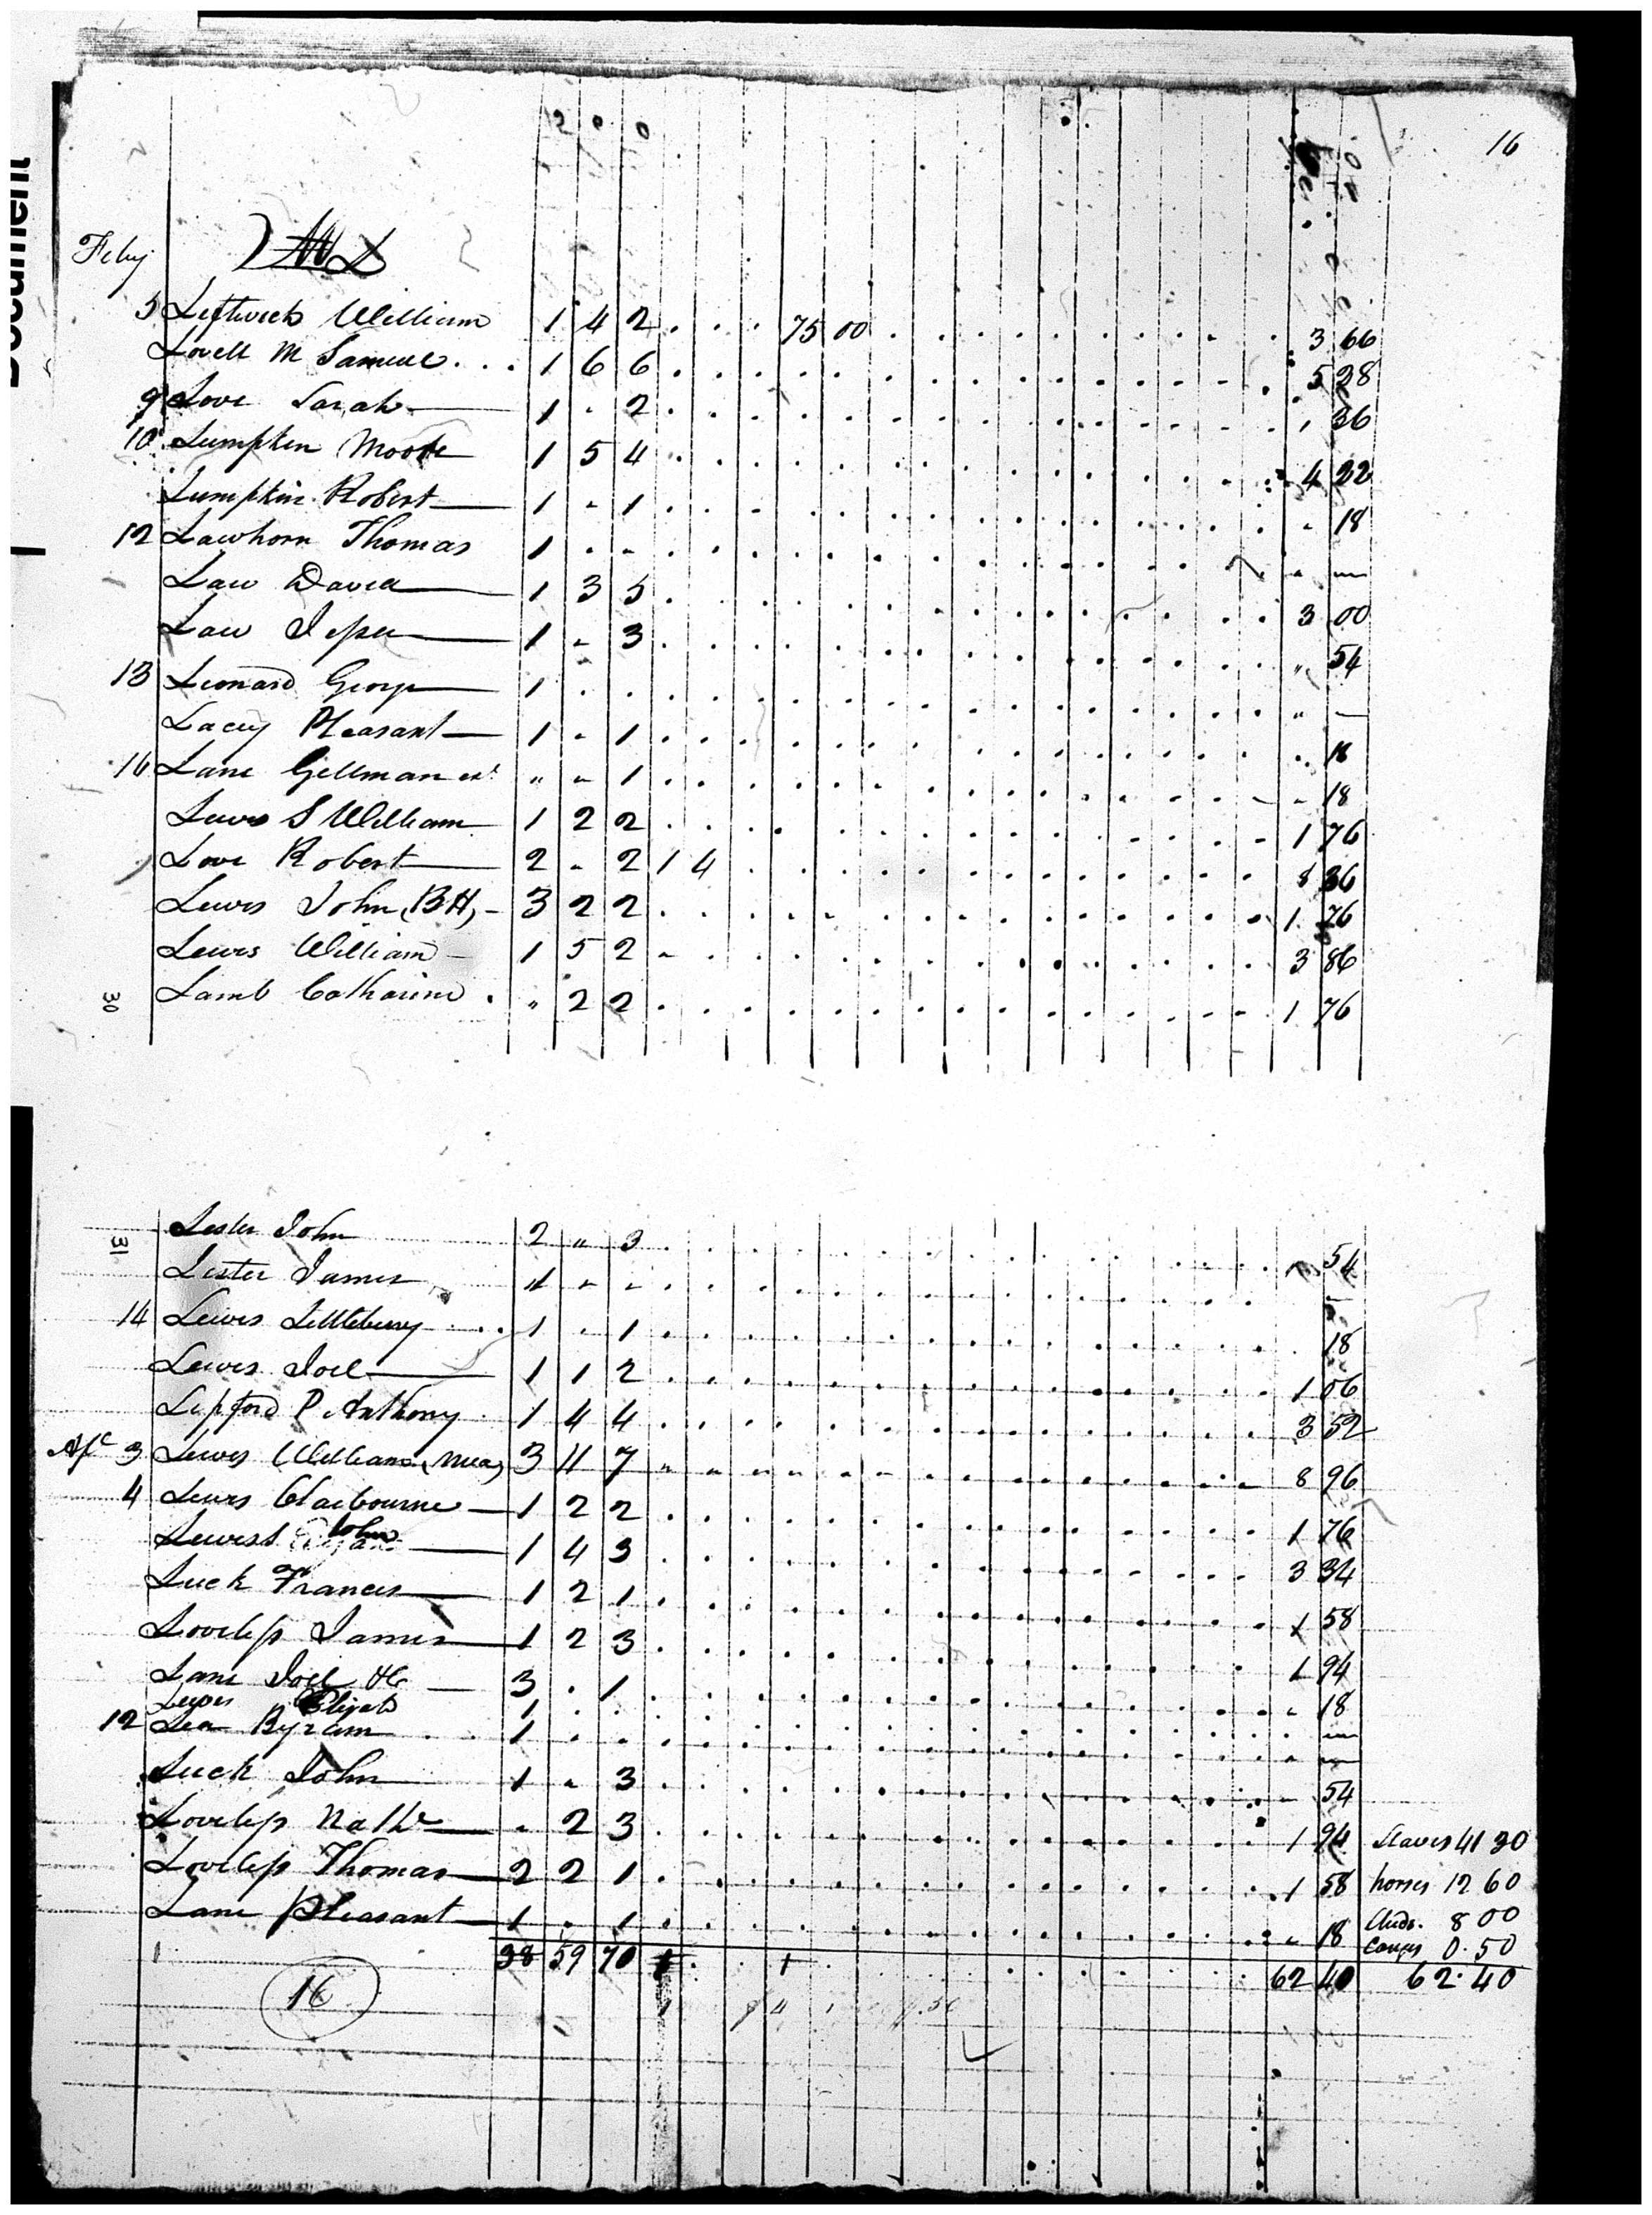 16
2 0 0
Feby L
5 Leftwich William 1 4 2 . . . 75 00 . . . 3 66
Lovell M Samuel . . . 1 6 6 . . . 5 28
9 Love Sarah 1 . 2 . . . 1 36
10 Lumpkin Moore 1 5 4 . . . 4 22
Lumpkin Robert 1 - 1 . . . - 18
12 Lawhorn Thomas 1 . - . . . " —
Law David 1 3 5 . . . 3 00
Law Jesse 1 - 3 . . . " 54
13 Leonard George 1 . . . . . " —
Lacey Pleasant 1 - 1 . . . . 18
16 Lane Gellman " - 1 . . . - 18
Lewis S William 1 2 2 . . . 1 76
Love Robert 2 - 2 1 4 . . . 8 36
Lewis John (BH) 3 2 2 . . . 1 76
Lewis William 1 5 2 - . . . 3 86
30 Lamb Catharine . " 2 2 . . . 1 76
31 Lester John 2 " 3 . . . 54
Lester James - - . . . —
14 Lewis Littleberry 1 . 1 . . . 18
Lewis Joel 1 1 2 . . . 1 06
Lipford P Anthony 1 4 4 . . . 3 52
3 Lewis William 3 11 7 " . . . 8 96
4 Lewis Claibourne 1 2 2 . . . 1 76
Lewis John 1 4 3 . . . 3 34
Luck Francis 1 2 1 . . . 1 58
Loveless James 1 2 3 . . . 1 94
Lane Joel H 3 . 1 . . . " 18
Lewis Elijah 1 . . . —
12 Lea Byram 1 . . . " —
Luck John 1 - 3 . . . - 54
Loveless Nathl - 2 3 . . . 1 94 Slaves 41 30
Loveless Thomas 2 2 1 . . . 1 58 horses 12 60
Lane Pleasant 1 . 1 . . . " 18 8 00
0.50
1 38 59 70 1 1 62 40 62.40
16